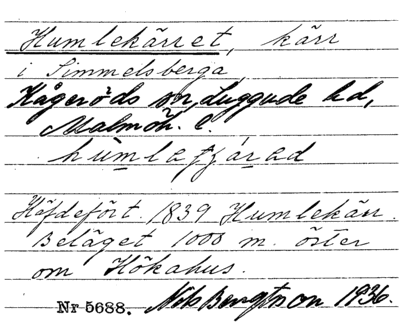 Humlekärret, kärr
i Simmelsberga
Kågeröds sn, Luggude hd,
Malmöh. l.
humlatjárad
Häfdefört 1839 Humlekärr.
Beläget 1000 m. öster
om Hökahus.
Nr 5688. Nils Bengtsson 1936.